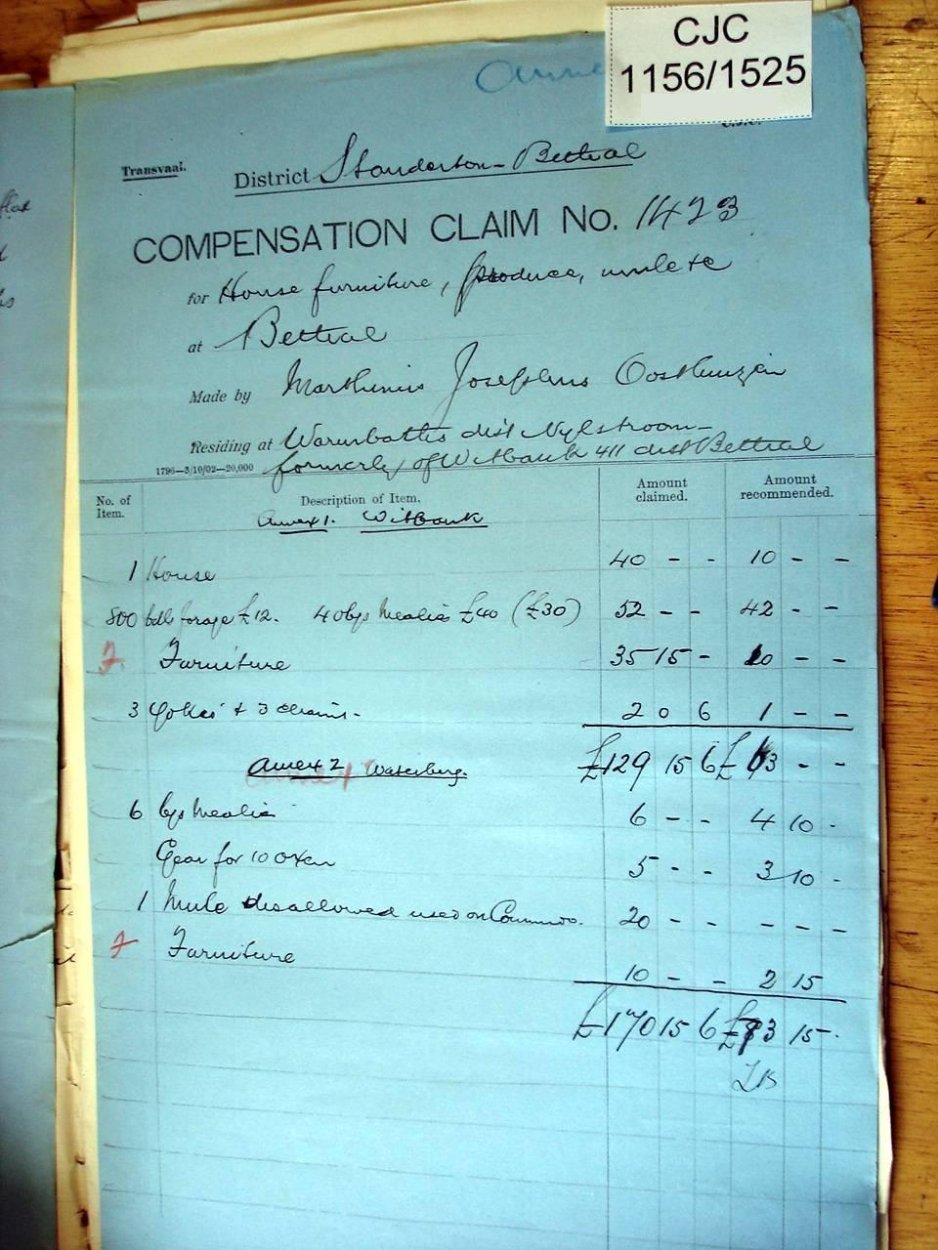 CJC
1156/1525
Anne
Transvaal.
District Standerton - Bethal
COMPENSATION CLAIM No. 1423
for House furniture, produce, mule etc
at Bethal
Made by Marthinus Josephus Oosthuizen
Residing at Warmbaths dist Nylstroom -
formerly of Witbank 411 dist Bethal
1796—3/10/02—20,000
No. of Item. Description of Item. Amount claimed. Amount recommended.
Annex 1. Witbank
1 House 40 - - 10 - -
800 bdls forage £12. 40 bgs Mealies £40 (£30) 52 - - 42 - -
F. Furniture 35 15 - 10 - -
3 Yokes + 3 chains. 2 0 6 1 - -
£129 15 6 £63 - -
Annex 2 Waterberg.
6 bgs Mealies 6 - - 4 10 -
Gear for 10 oxen 5 - - 3 10 -
1 Mule disallowed used on Commdo. 20 - - - - -
F Furniture 10 - - 2 15
£170 15 6 £73 15 -